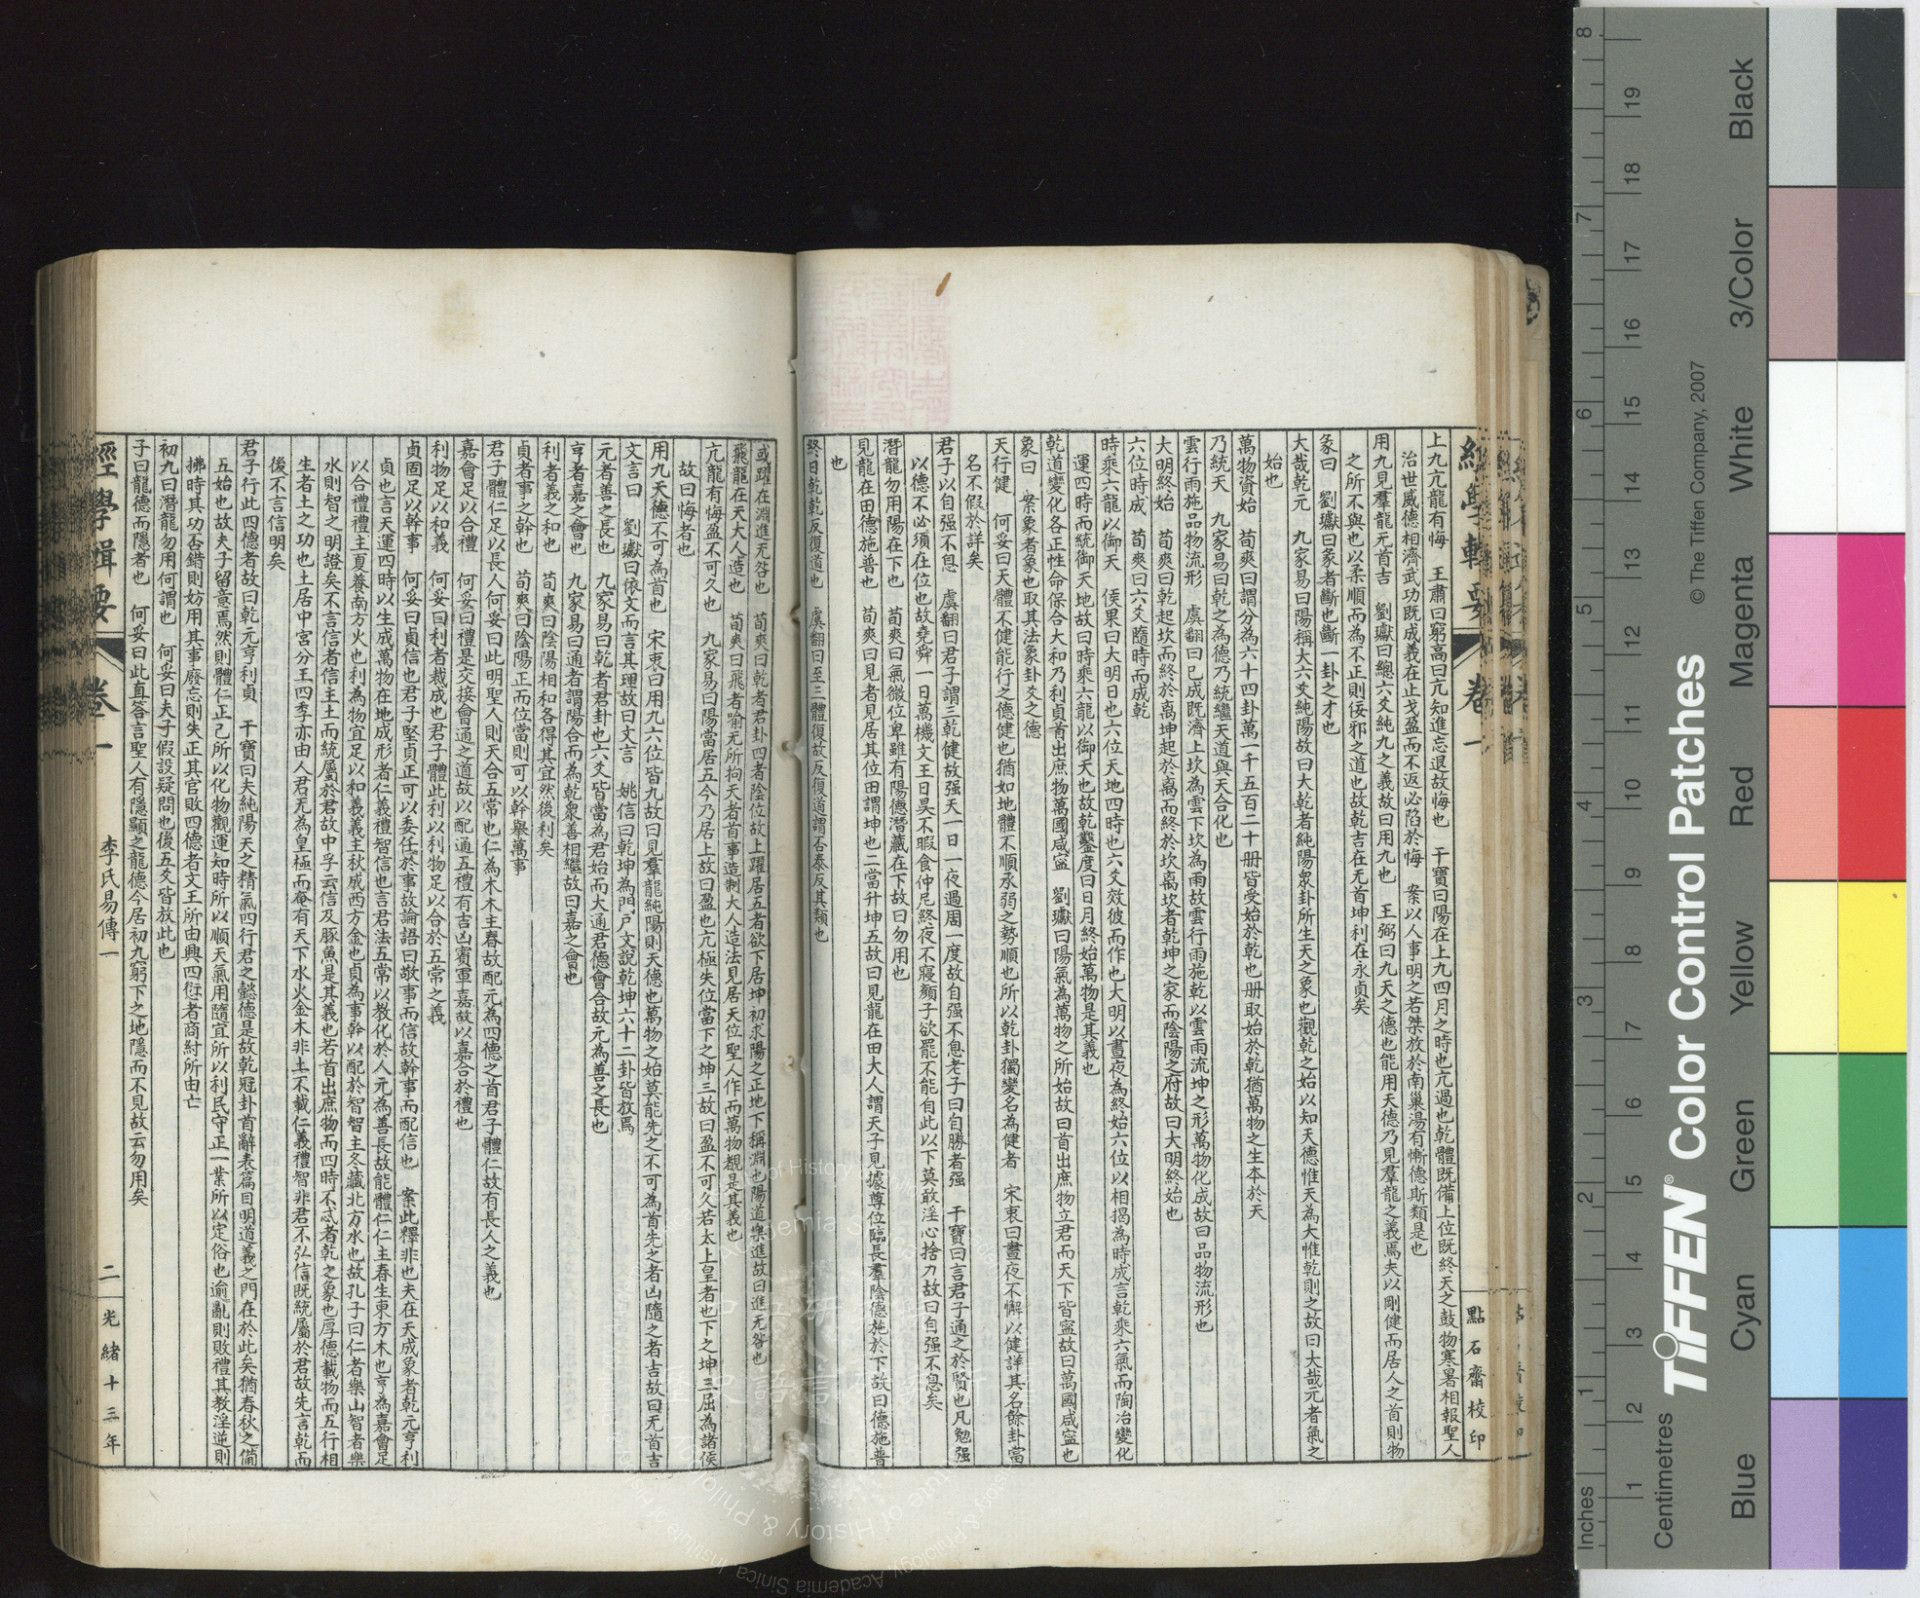 經學輯要
卷一
點石齋校印
上九亢龍有悔　王肅曰窮高曰亢知進忘退故悔也　干寶曰陽在上九四月之時也亢過也乾體既備上位既終天之鼓物寒暑相報聖人
治世威德相濟武功既成義在止戈盈而不返必陷於悔　案以人事明之若桀放於南巢湯有慚德斯類是也
用九見羣龍无首吉　劉瓛曰總六爻純九之義故曰用九也　王弼曰九天之德也能用天德乃見羣龍之義焉夫以剛健而居人之首則物
之所不與也以柔順而為不正則佞邪之道也故乾吉在无首坤利在永貞矣
彖曰　劉瓛曰彖者斷也斷一卦之才也
大哉乾元　九家易曰陽稱大六爻純陽故曰大乾者純陽衆卦所生天之象也觀乾之始以知天德惟天為大惟乾則之故曰大哉元者氣之
始也
萬物資始　荀爽曰謂分為六十四卦萬一千五百二十册皆受始於乾也册取始於乾猶萬物之生本於天
乃統天　九家易曰乾之為德乃統繼天道與天合化也
雲行雨施品物流形　虞翻曰已成既濟上坎為雲下坎為雨故雲行雨施乾以雲雨流坤之形萬物化成故曰品物流形也
大明終始　荀爽曰乾起坎而終於离坤起於离而終於坎离坎者乾坤之家而陰陽之府故曰大明終始也
六位時成　荀爽曰六爻隨時而成乾
時乘六龍以御天　侯果曰大明日也六位天地四時也六爻效彼而作也大明以晝夜為終始六位以相揭為時成言乾乘六氣而陶冶變化
運四時而統御天地故曰時乘六龍以御天也故乾鑿度曰日月終始萬物是其義也
乾道變化各正性命保合大和乃利貞首出庶物萬國咸寍　劉瓛曰陽氣為萬物之所始故曰首出庶物立君而天下皆寍故曰萬國咸寍也
象曰　案象者象也取其法象卦爻之德
天行健　何妥曰天體不健能行之德健也猶如地體不順承弱之勢順也所以乾卦獨變名為健者　宋衷曰晝夜不懈以健詳其名餘卦當
名不假於詳矣
君子以自强不息　虞翻曰君子謂三乾健故强天一日一夜過周一度故自强不息老子曰自勝者强　干寶曰言君子通之於賢也凡勉强
以德不必須在位也故堯舜一日萬機文王日昃不暇食仲尼終夜不寢顏子欲罷不能自此以下莫敢淫心捨力故曰自强不息矣
潛龍勿用陽在下也　荀爽曰氣微位卑雖有陽德潛藏在下故曰勿用也
見龍在田德施普也　荀爽曰見者見居其位田謂坤也二當升坤五故曰見龍在田大人謂天子見據尊位臨長羣陰德施於下故曰德施普
也
終日乾乾反復道也　虞翻曰至三體復故反復道謂否泰反其類也
或躍在淵進无咎也　荀爽曰乾者君卦四者陰位故上躍居五者欲下居坤初求陽之正地下稱淵也陽道樂進故曰進无咎也
飛龍在天大人造也　荀爽曰飛者喻无所拘天者首事造制大人造法見居天位聖人作而萬物覩是其義也
亢龍有悔盈不可久也　九家易曰陽當居五今乃居上故曰盈也亢極失位當下之坤三故曰盈不可久若太上皇者也下之坤三屈為諸侯
故曰悔者也
用九天德不可為首也　宋衷曰用九六位皆九故曰見羣龍純陽則天德也萬物之始莫能先之不可為首先之者凶隨之者吉故曰无首吉
文言曰　劉瓛曰依文而言其理故曰文言　姚信曰乾坤為門戶文說乾坤六十二卦皆放焉
元者善之長也　九家易曰乾者君卦也六爻皆當為君始而大通君德會合故元為善之長也
亨者嘉之會也　九家易曰通者謂陽合而為乾衆善相繼故曰嘉之會也
利者義之和也　荀爽曰陰陽相和各得其宜然後利矣
貞者事之幹也　荀爽曰陰陽正而位當則可以幹舉萬事
君子體仁足以長人何妥曰此明聖人則天合五常也仁為木木主春故配元為四德之首君子體仁故有長人之義也
嘉會足以合禮　何妥曰禮是交接會通之道故以配通五禮有吉凶賓軍嘉故以嘉合於禮也
利物足以和義　何妥曰利者裁成也君子體此利以利物足以合於五常之義
貞固足以幹事　何妥曰貞信也君子堅貞正可以委任於事故論語曰敬事而信故幹事而配信也　案此釋非也夫在天成象者乾元亨利
貞也言天運四時以生成萬物在地成形者仁義禮智信也言君法五常以教化於人元為善長故能體仁仁主春生東方木也亨為嘉會足
以合禮禮主夏養南方火也利為物宜足以和義義主秋成西方金也貞為事幹以配於智智主冬藏北方水也故孔子曰仁者樂山智者樂
水則智之明證矣不言信者信主土而統屬於君故中孚云信及豚魚是其義也若首出庶物而四時不忒者乾之象也厚德載物而五行相
生者土之功也土居中宮分王四季亦由人君无為皇極而奄有天下水火金木非土不載仁義禮智非君不弘信既統屬於君故先言乾而
後不言信明矣
君子行此四德者故曰乾元亨利貞　干寶曰夫純陽天之精氣四行君之懿德是故乾冠卦首辭表篇目明道義之門在於此矣猶春秋之備
五始也故夫子留意焉然則體仁正己所以化物觀運知時所以順天氣用隨宜所以利民守正一業所以定俗也逾亂則敗禮其教淫逆則
拂時其功否錯則妨用其事廢忘則失正其官敗四德者文王所由興四愆者商紂所由亡
初九曰潛龍勿用何謂也　何妥曰夫子假設疑問也後五爻皆放此也
子曰龍德而隱者也　何妥曰此直答言聖人有隱顯之龍德今居初九窮下之地隱而不見故云勿用矣
經學輯要
卷一
李氏易傳一
二
光緒十三年
Inches
Centimetres
1
2
3
4
5
6
7
8
1
2
3
4
5
6
7
8
9
10
11
12
13
14
15
16
17
18
19
TIFFEN® Color Control Patches
© The Tiffen Company, 2007
Blue
Cyan
Green
Yellow
Red
Magenta
White
3/Color
Black